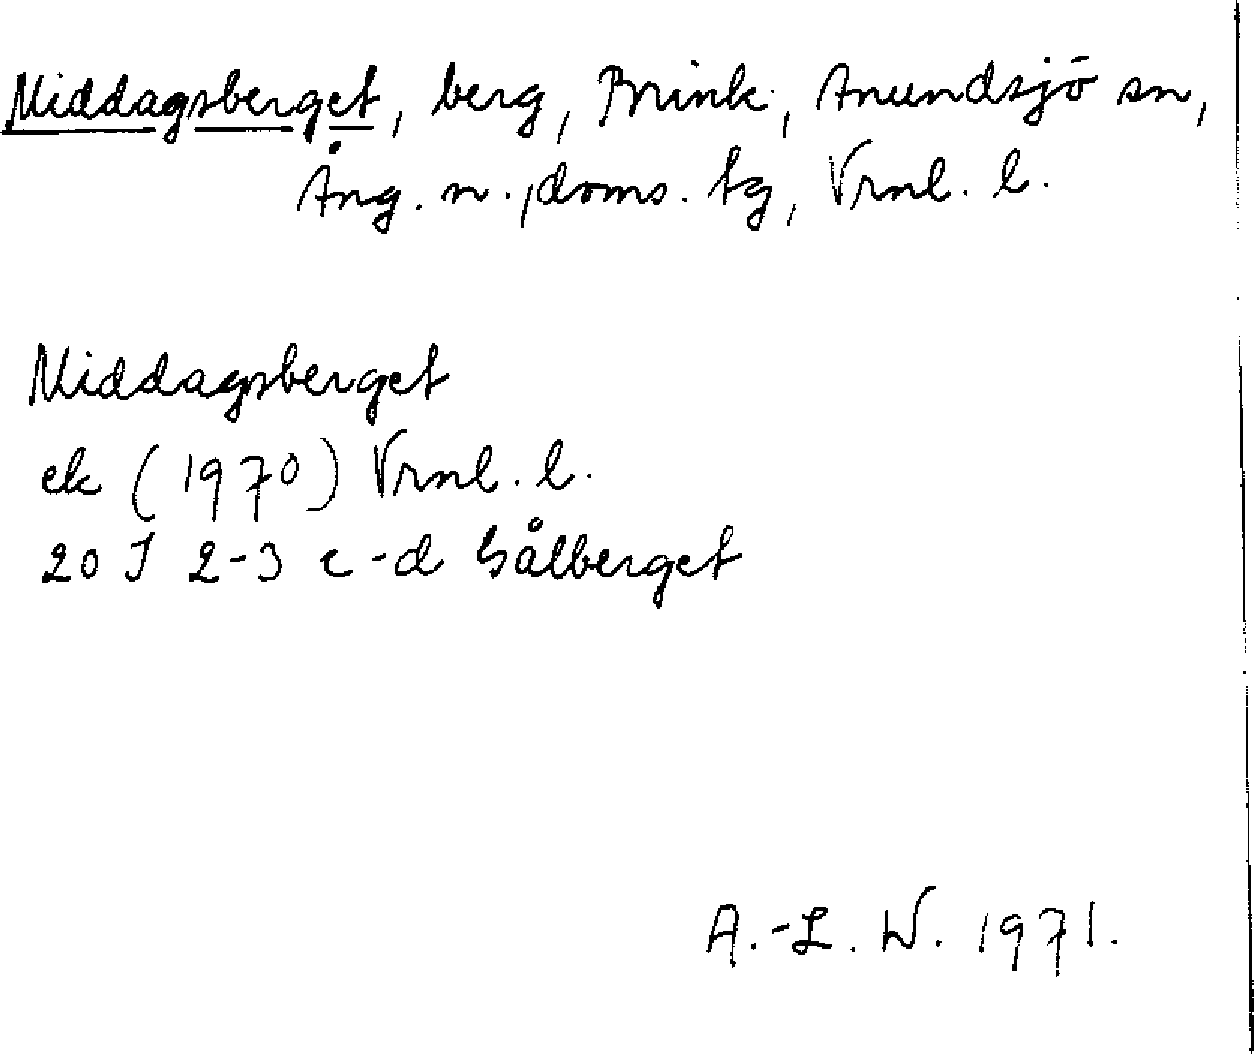 Middagsberget, berg, Brink, Anundsjö sn,
Ång. n. doms. tg, Vrnl. l.
Middagsberget
ek (1970) Vrnl. l.
20 J 2-3 c-d Sålberget
A.-L. W. 1971.